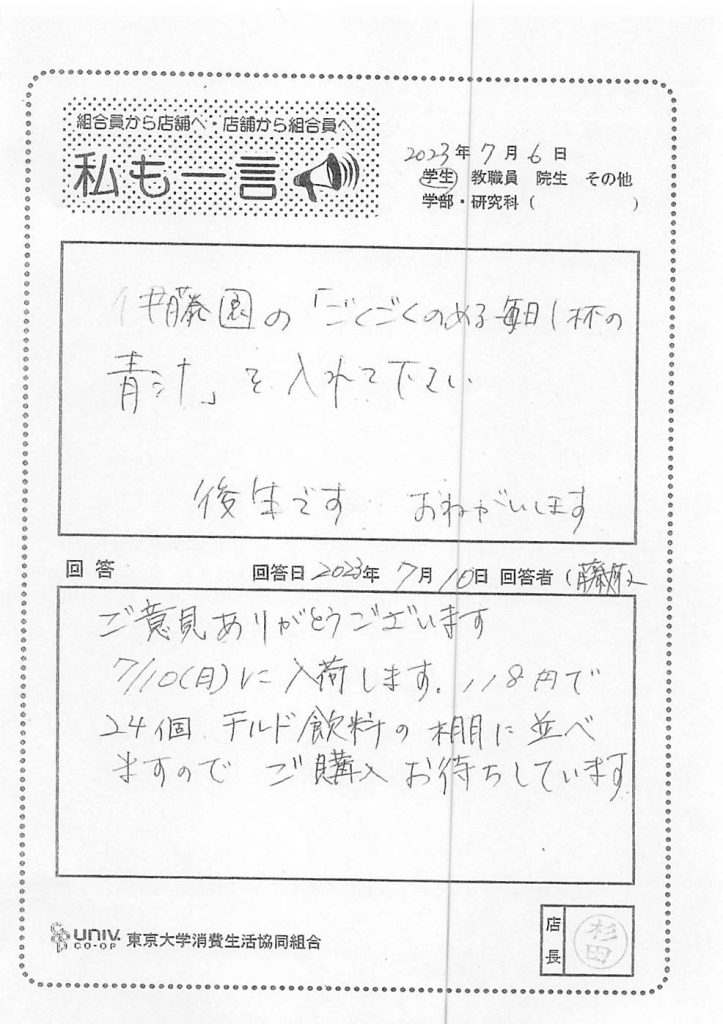 組合員から店舗へ・店舗から組合員へ
私も一言
2023年7月6日
学生 教職員 院生 その他
学部・研究科( )
伊藤園の「ごくごくのめる毎日1杯の
青汁」を入れて下さい
後生です おねがいします
回答 回答日 2023年 7月 10日 回答者(藤原)
ご意見ありがとうございます
7/10(月)に入荷します。118円で
24個 チルド飲料の棚に並べ
ますので ご購入お待ちしています
UNIV. CO-OP 東京大学消費生活協同組合
店長 杉田